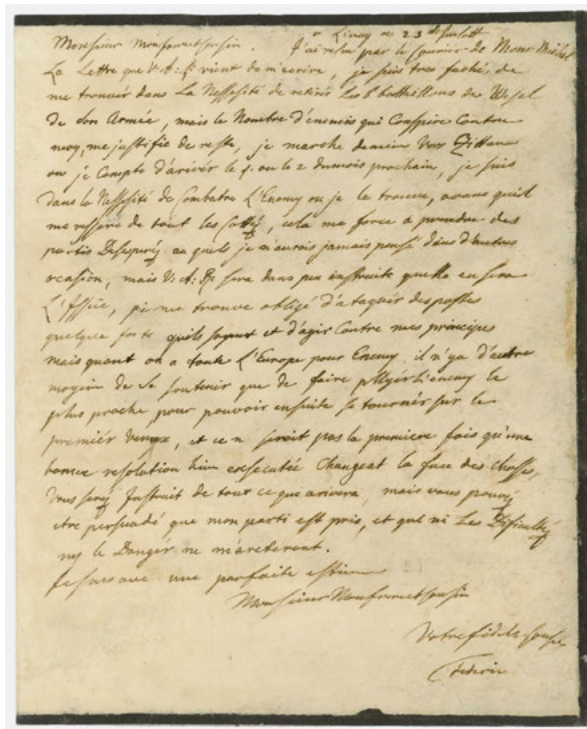 Monsieur Monfrere et Cousin. a Linay ce 23 de Juillet
J'ai resu par le Courier de Mons:
La Lettre que V: A: R: vient de m'ecrire, je suis tres faché, de
me trouvér dans La Nessesité de retirér Les 6 bathaillons de Wesel
de Son Armée, mais le Nombre d'enemis qui Conspire Contre
moy, me justifie de reste, je marche demein Vers Zittau
ou je Compte d'arivér le 1. ou le 2 du mois prochain, je suis
dans la Nessesité de Combatre L'Enemy ou je le trouve, avans quil
me ressere de tout les Cottéz, cela me force a prendre des
partis Desesperéz au quels je n'aurois jamais pensé dans d'autres
ocasion, mais V: A: R: sera dans peu instruite quelle en sera
L'Issüe, je me trouve obligé d'ataquér des postes
quelque forts quils soyent et d'agir Contre mes principes
mais quant on a toute L'Europe pour Enemy il n'y a d'autre
moyein de Se soutenir que de faire plOyér L'enemy le
plus proche pour pouvoir ensuite se tournér sur le
premiér venger, et ce n' seroit pas la premiere fois qu'une
bonne resolution bien exsecutée Changeat la face des choses,
Vous seréz Instruit de tout ce que arivera, mais vous pouvéz
etre persuadé que mon parti est pris, et que ni Les Dificultéz
ny le Dangér ne m'areteront.
Je suis avec une parfaite estime
Monsieur Monfrere et Cousin
Votre fidele Cousin
Federic